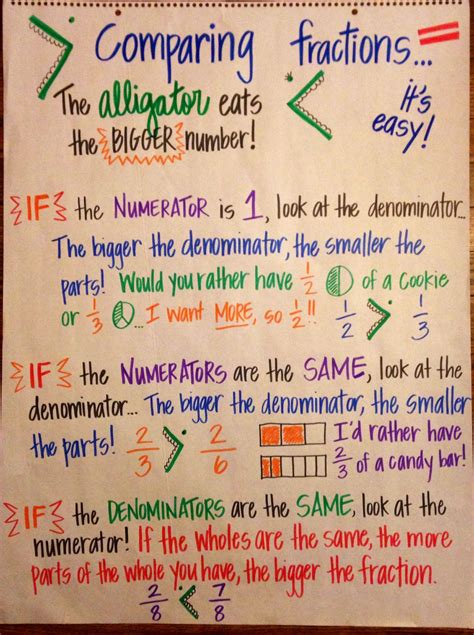 > Comparing fractions... =
The alligator eats < it's
the BIGGER number! easy!
IF the NUMERATOR is 1, look at the denominator...
The bigger the denominator, the smaller the
parts! Would you rather have 1/2 of a cookie
or 1/3 ... I want MORE, so 1/2!! 1/2 > 1/3
IF the NUMERATORS are the SAME, look at the
denominator... The bigger the denominator, the smaller
the parts! 2/3 > 2/6 I'd rather have
2/3 of a candy bar!
IF the DENOMINATORS are the SAME, look at the
numerator! If the wholes are the same, the more
parts of the whole you have, the bigger the fraction.
2/8 < 7/8